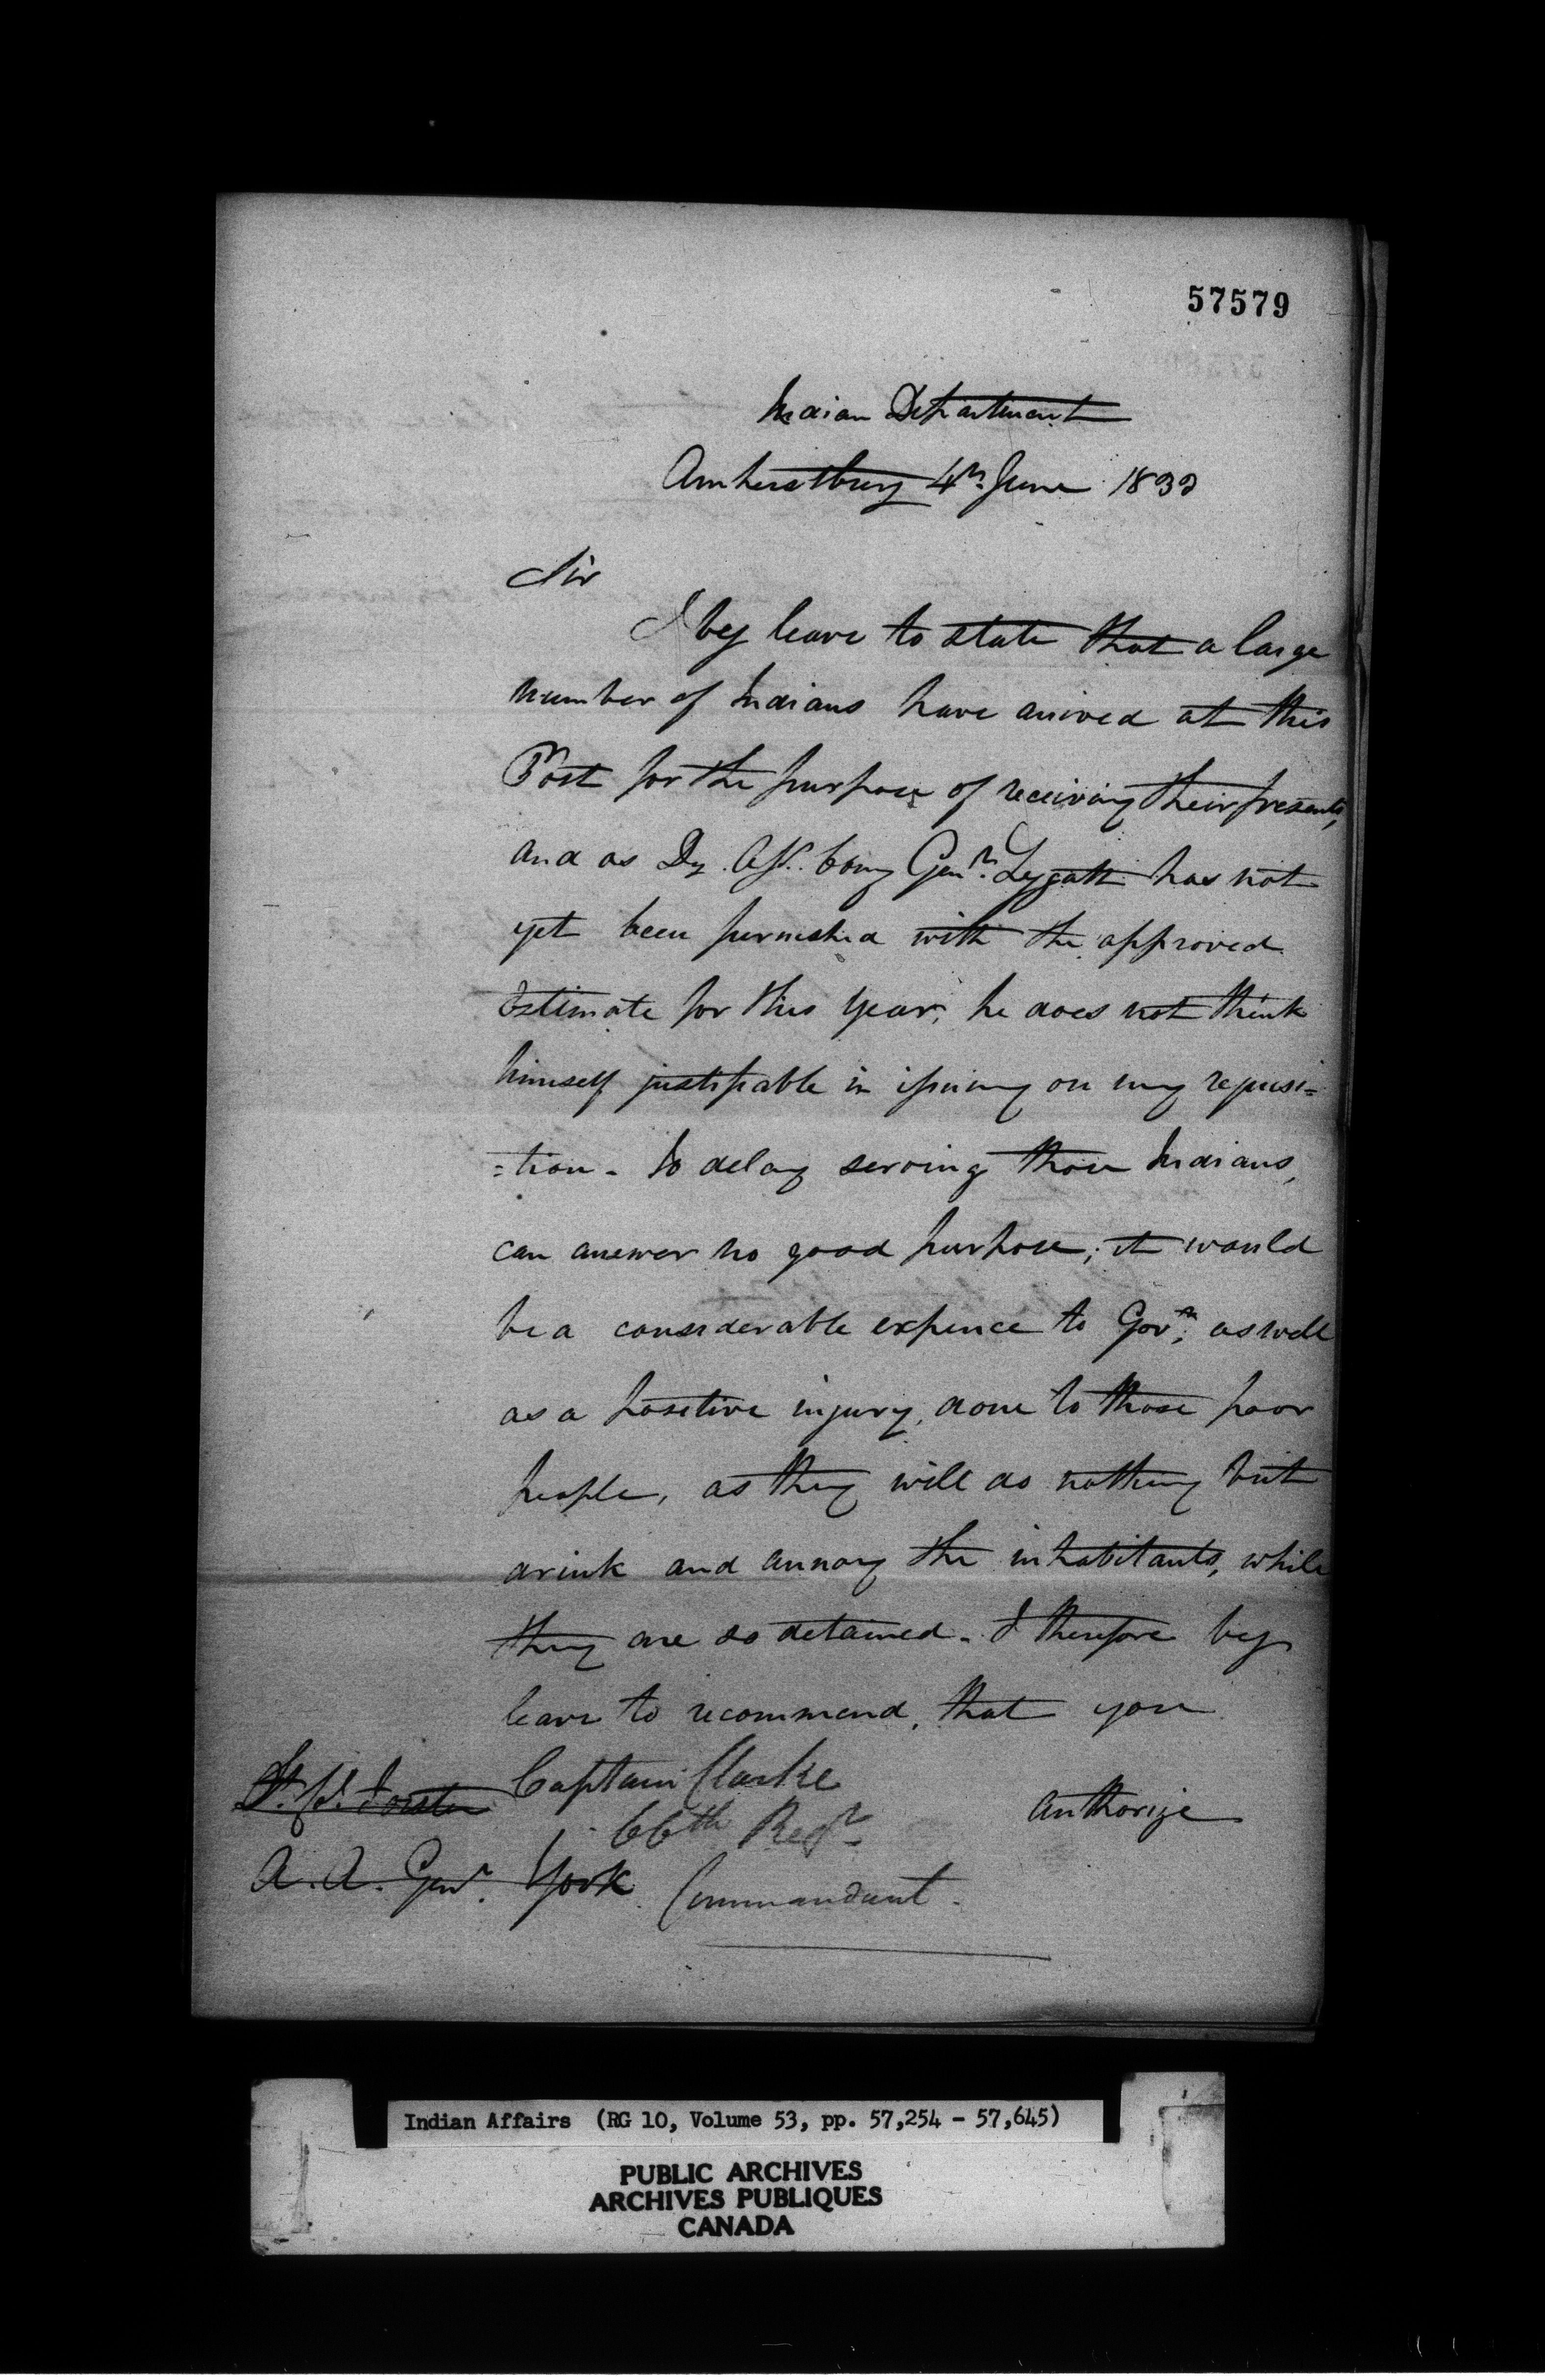 57579
Indian Department
Amherstburg 4th June 1833
Sir
I beg leave to state that a large
number of Indians have arrived at this
Post for the purpose of receiving their presents,
and as Dy. Asst. Comy Genl. Lygatt has not
yet been furnished with the approved
Estimate for this year, he does not think
himself justifiable in issuing on my requisi=
=tion - to delay serving those Indians,
can answer no good purpose; it would
be a considerable expence to Govt; as well
as a positive injury, done to those poor
people, as they will do nothing but
drink and annoy the inhabitants, while
they are so detained - I therefore beg
leave to recommend, that you
authorize
Captain Clarke
66th Regt
A. A. Genl. York Commandant.
Indian Affairs (RG 10, Volume 53, pp. 57,254 - 57,645)
PUBLIC ARCHIVES
ARCHIVES PUBLIQUES
CANADA